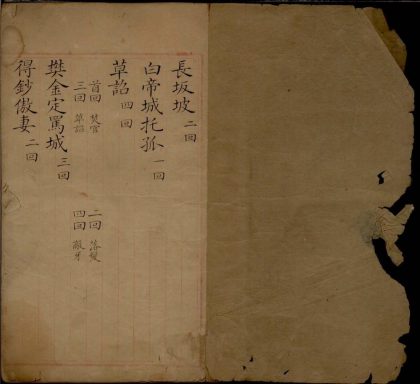 長坂坡 二回
白帝城托孤 一回
草詔 四回
首回 焚宮 二回 落髮
三回 草詔 四回 敲牙
樊金定罵城 三回
得鈔傲妻 二回